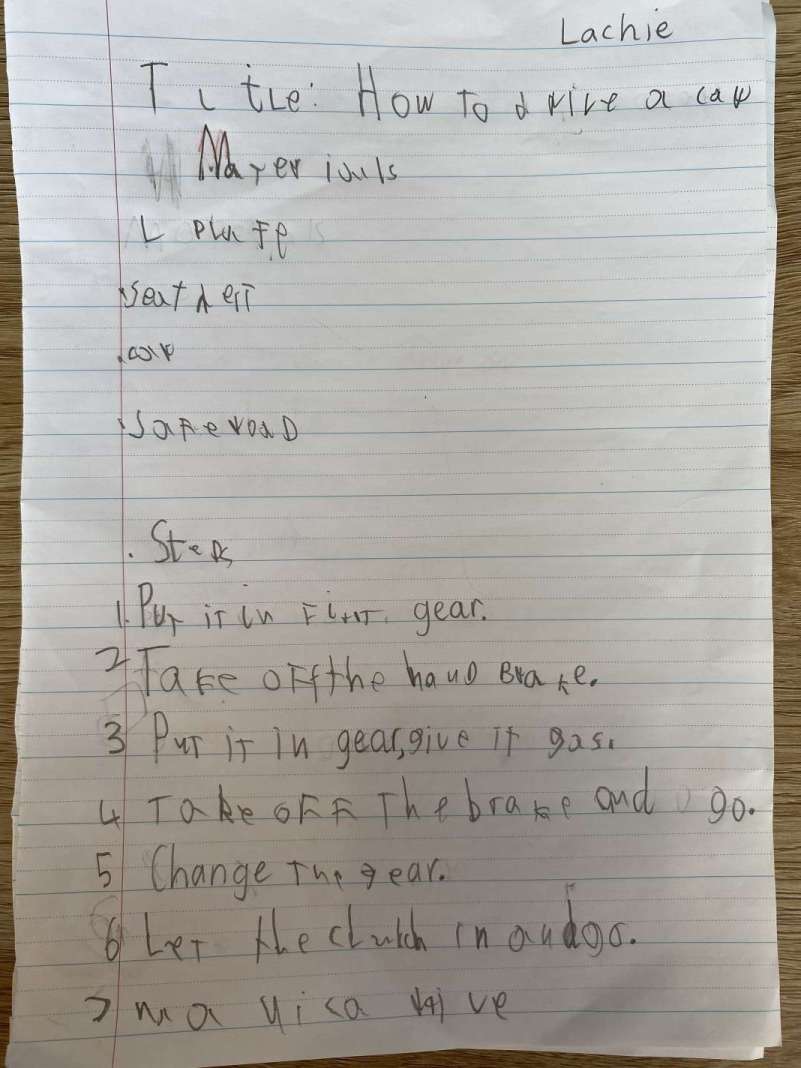 Lachie
Title: How to drive a car
Materiouls
L plate
.seat belt
.car
.safe road
. Steps
1. Put it in first gear.
2 Take off the hand Brake.
3 Put it in gear, give it gas.
4 Take off the brake and go.
5 Change the gear.
6 Let the clutch in and go.
7